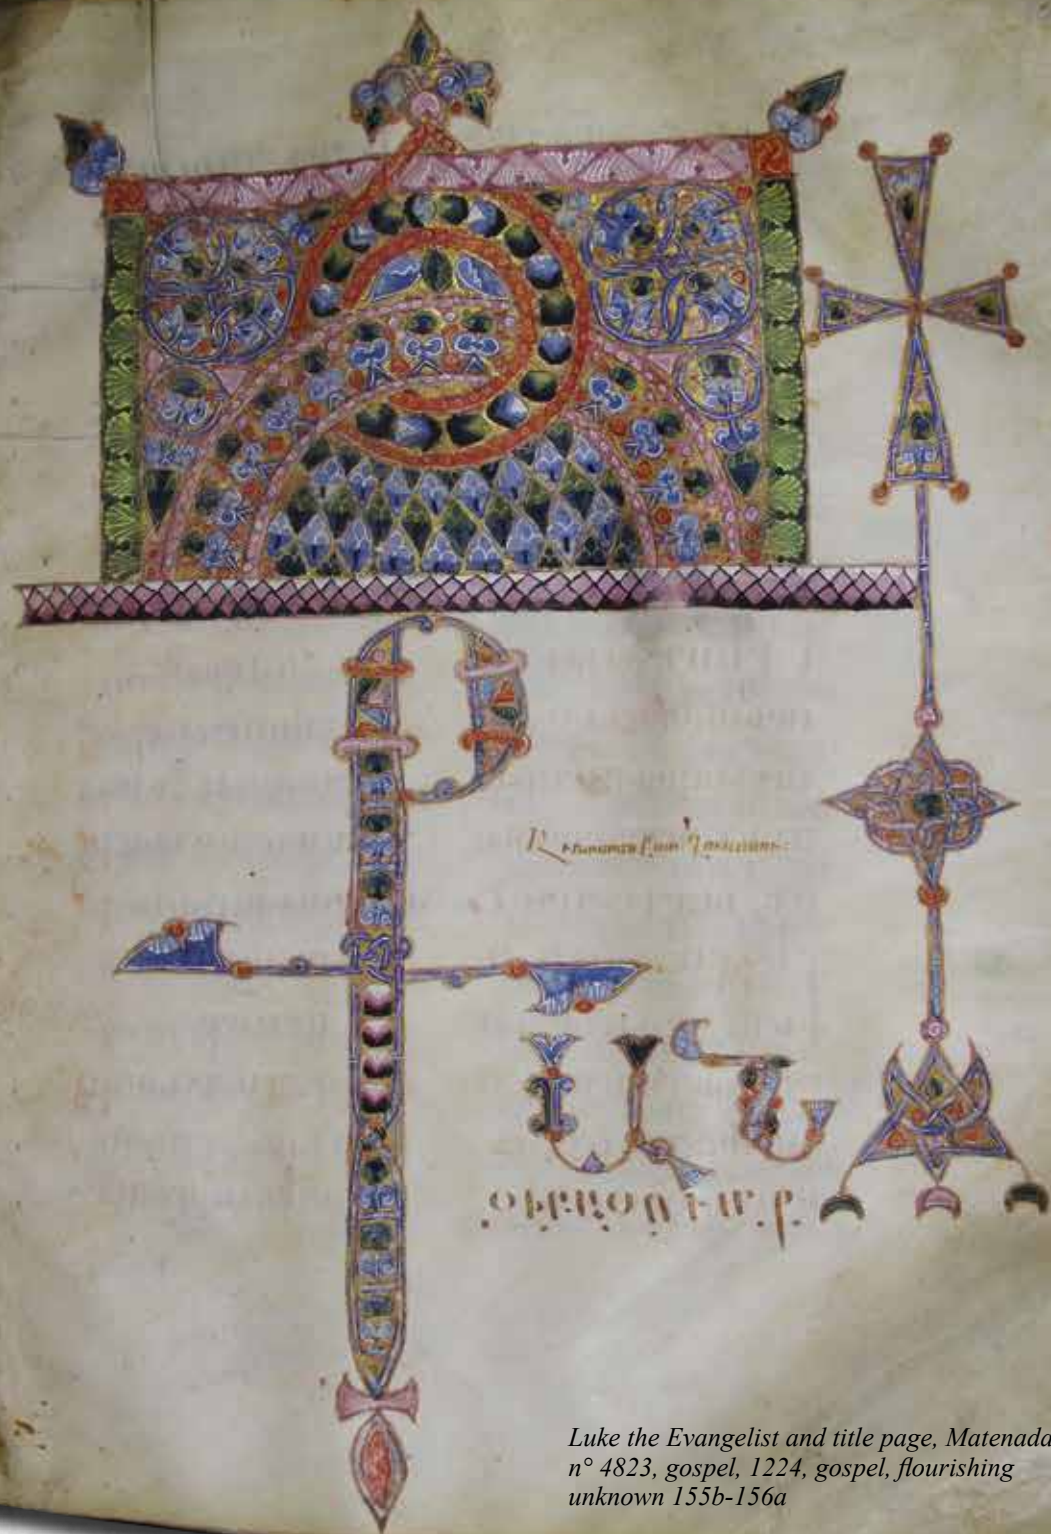 Աւետարան ըստ Ղուկասու:
ՔԱՆ
Luke the Evangelist and title page, Matenada
n° 4823, gospel, 1224, gospel, flourishing
unknown 155b-156a